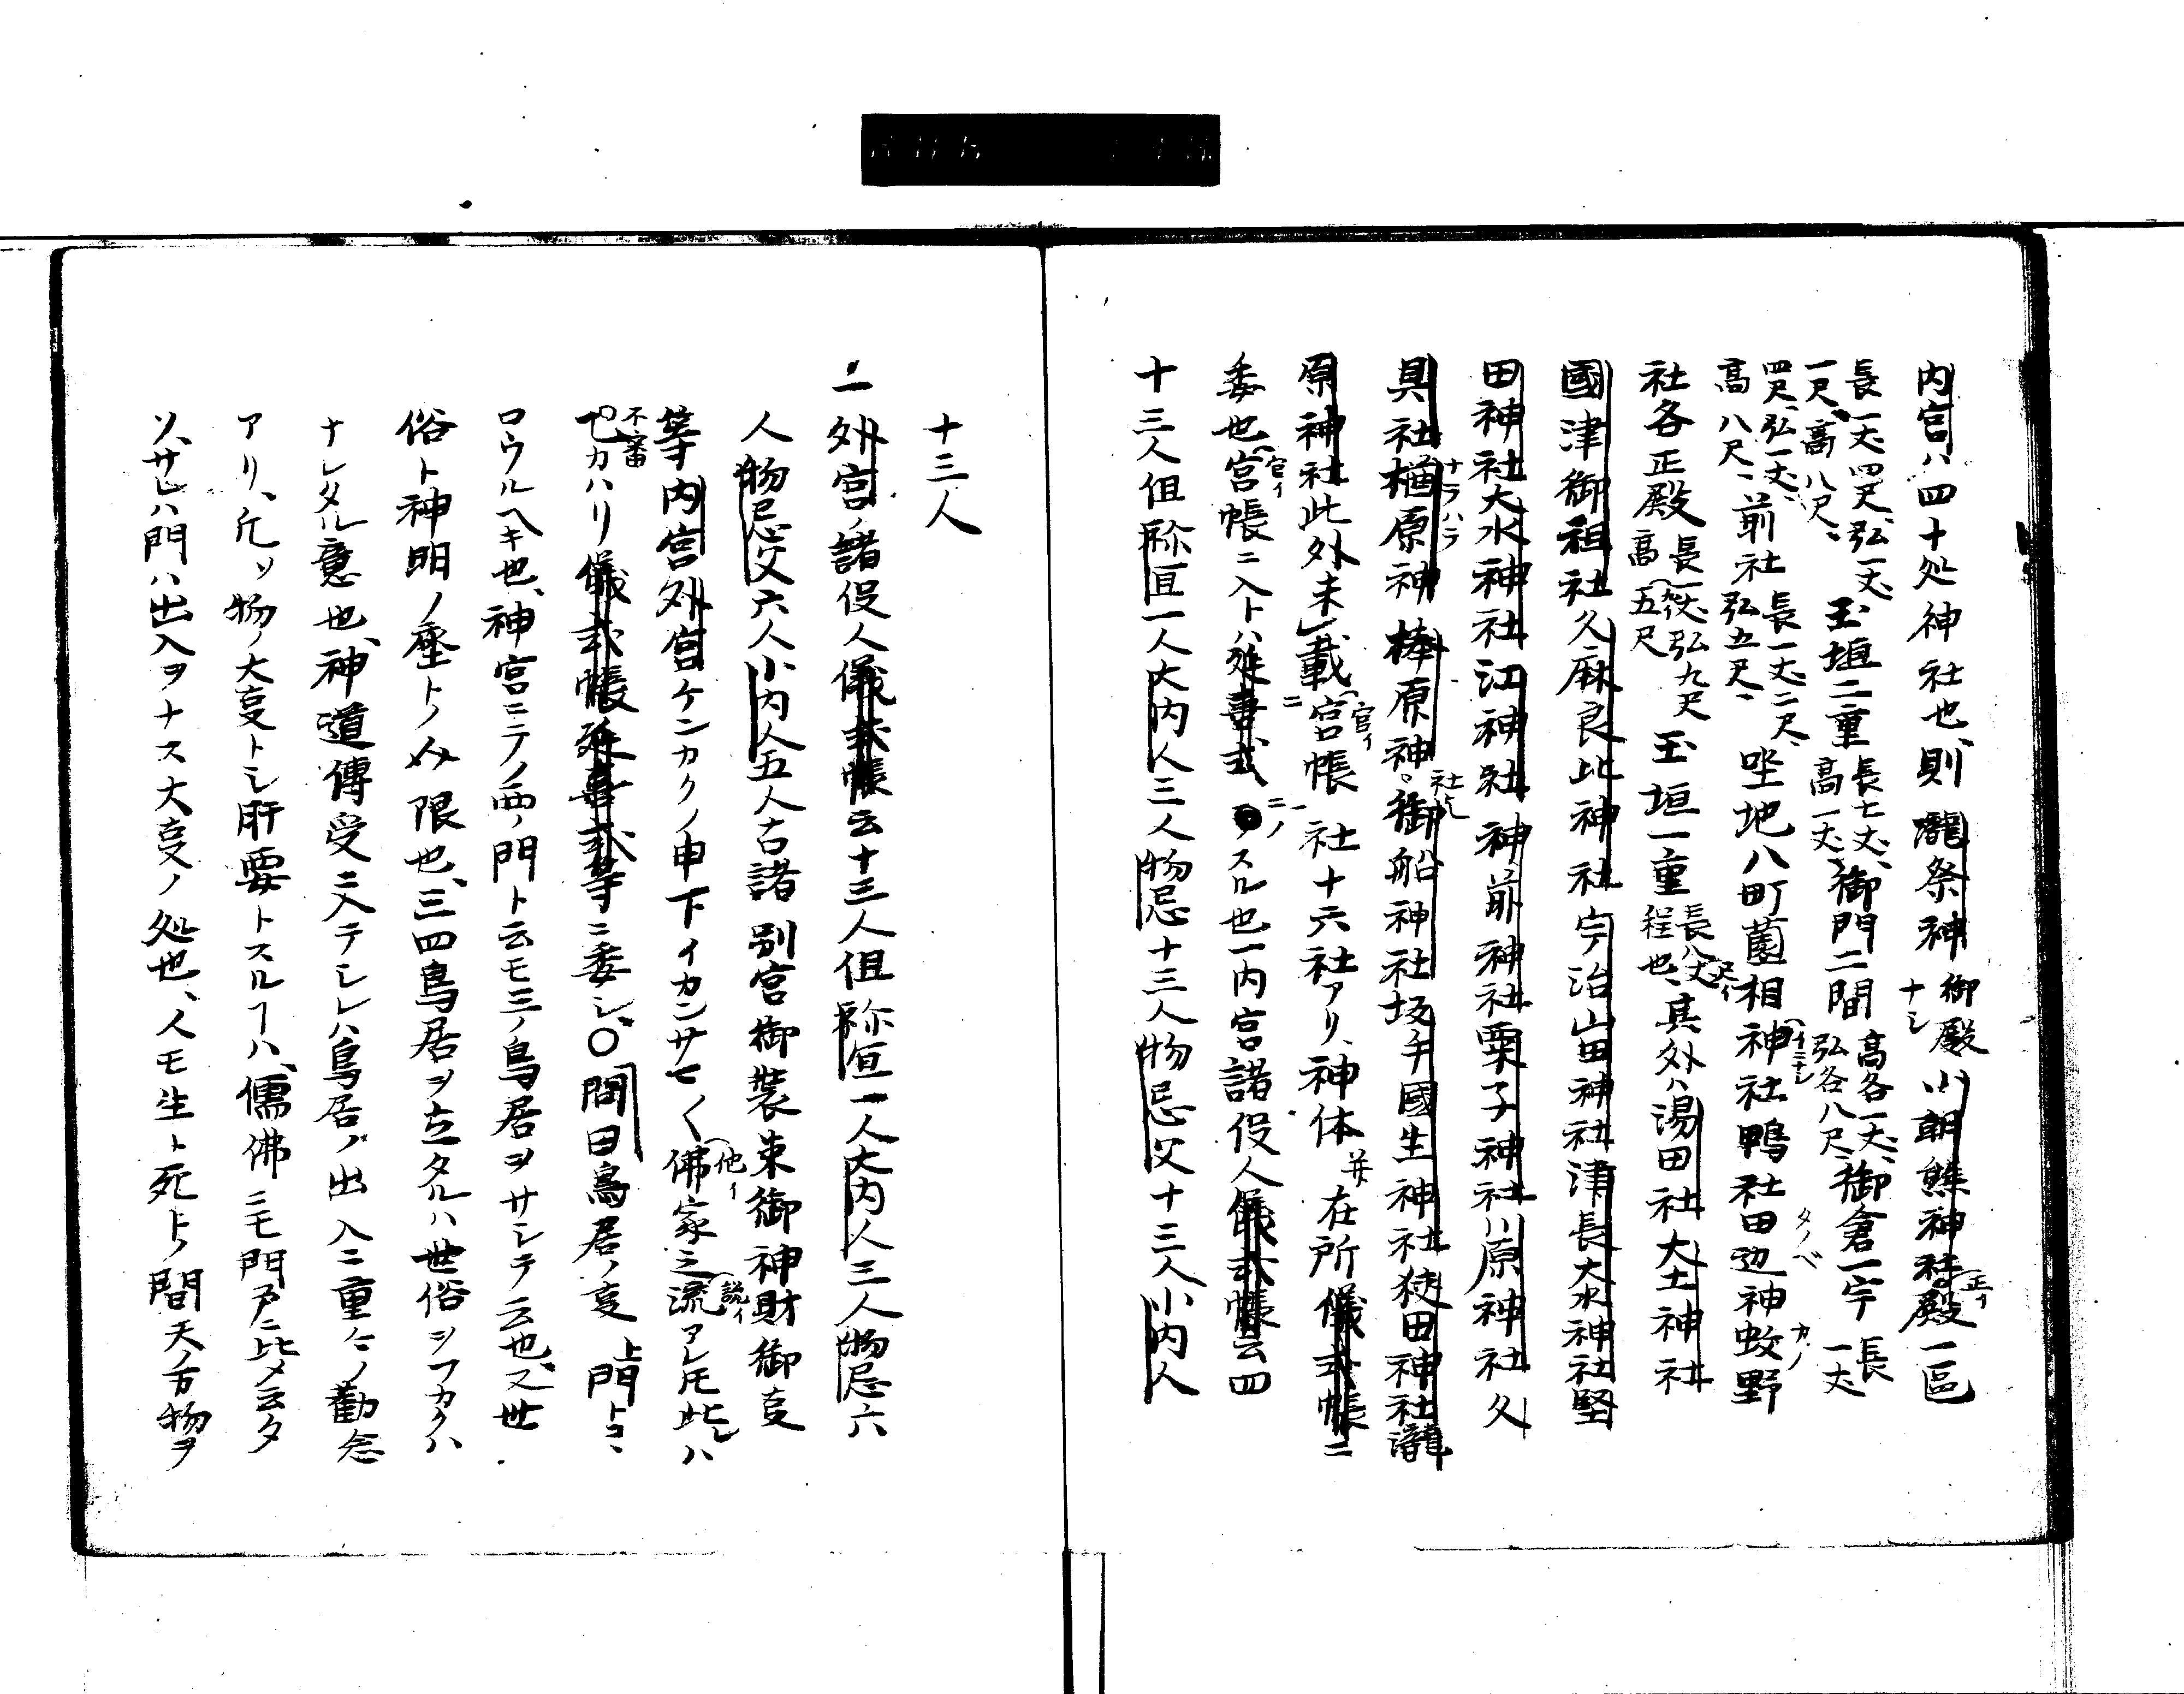 内宮ハ四十処神社也、則瀧祭神御殿ナシ小朝熊神社正イ殿一區
長一丈四尺、弘一丈一尺、高八尺、玉垣二重長七丈、高一丈、御門二間高各一丈、弘各八尺、御倉一宇長一丈
四尺、弘一丈、高八尺、前社長一丈二尺、弘五尺、坐地八町薗相神社鴨社田辺神蚊野
社各正殿長一丈、弘九尺高五尺玉垣一重長八丈程也、其外ハ湯田社大土神社
國津御祖社久麻良比神社宇治山田神社津長大水神社堅
田神社大水神社江神社神前神社粟子神社川原神社久
具社楢原神榛原神御船神社坂手國生神社狭田神社瀧
原神社此外未載官イ宮帳ニ社十六社アリ、神体并在所儀式帳ニ
委也官イ宮帳ニ入トハ延喜式ニノスル也一内宮諸役人儀式帳云四
十三人但祢宜一人大内人三人物忌十三人物忌父十三人小内人
十三人
一外宮ノ諸役人儀式帳云十三人但祢宜一人大内人三人物忌六
人物忌父六人小内人五人古諸別宮御装束御神財御事
等内宮外宮ケンカクノ申下イカンサモ〱他イ佛家之説イ流アレトモ此レハ
不審カハリ儀式帳延喜式等ニ委シ、〇問曰鳥居ノ事上門トコヽ
ロウルヘキ也、神宮ニテノ両ノ門ト云モ三ノ鳥居ヲサシテ云也、又世
俗ト神明ノ塵トノ〆限也、三四鳥居ヲ立タルハ世俗ヲフカクハ
ナレタル意也、神道傳受ニ入テシレハ鳥居ノ出入ニ重々ノ勸念
アリ、凡ソ物ノ大事トシ肝要トスルコトハ、儒佛ニモ門戸ニ比〆云タ
ソ、サレハ門ハ出入ヲナス大事ノ処也、人モ生ト死トノ間天ノ万物ヲ